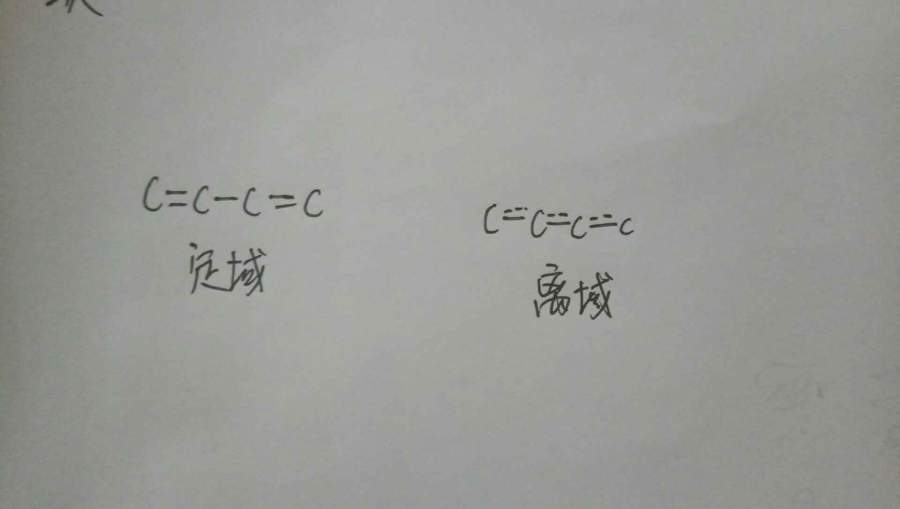 C=C-C=C
定域
C=C=C=C
离域